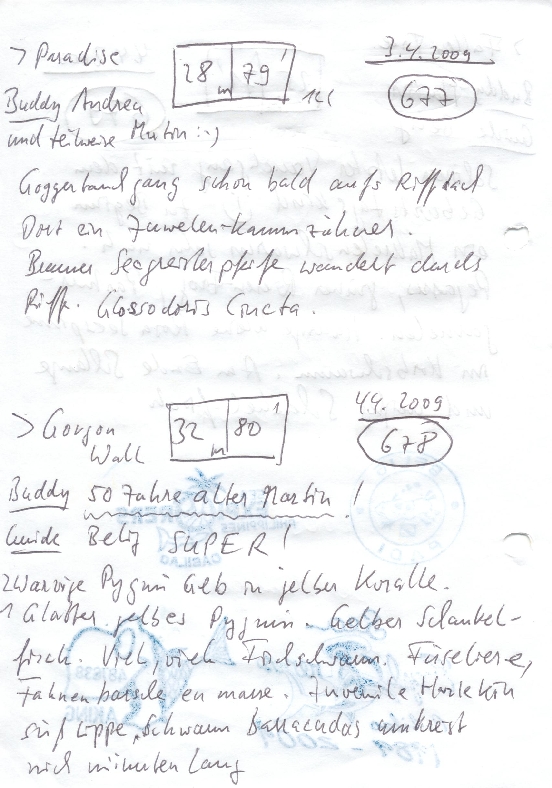 > Paradise
28 m 79'
1cc
3.4.2009
677
Buddy Andrea
und teilweise Martin :-)
gang schon bald aufs Riffdach
Dort ein Juwelen-Kammzähner.
Brauner Seegreisler pfeife wandelt durchs
Riff. Glossodoris Cincta.
> Gorgon
Wall
32 m 80'
4.4.2009
678
Buddy 50 Jahre alter Martin!
Guide Belig SUPER!
2 warzige Pygmi Gelb in gelber Koralle.
1 Glatter gelbes Pygmi. Gelber Schaukel-
fisch. Viel, viel Fischschwarm. Füseliere,
Fahnenbarsche en masse. Juvenile Harlekin
süßlippe, Schwarm Barracudas umkreist
mich minuten lang
PHILIPPINES